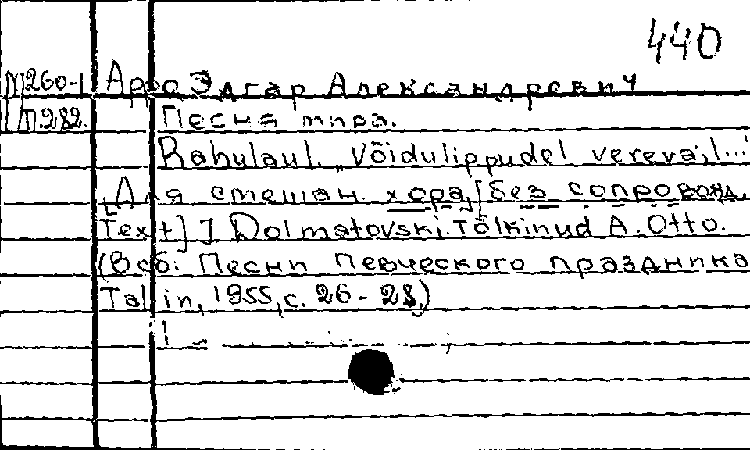 440
М260-1 Арро Эдгар Александрович
П282. Песня мира.
Rahulaul. „Võidulippudel vereva; l...
[Для смешан. хора, [без сопровожд.
Text] J Dolmatovski, Tõlkinud A. Otto.
(В сб: Песни Певческого праздника
Tallin, 1955, с. 26-28.)